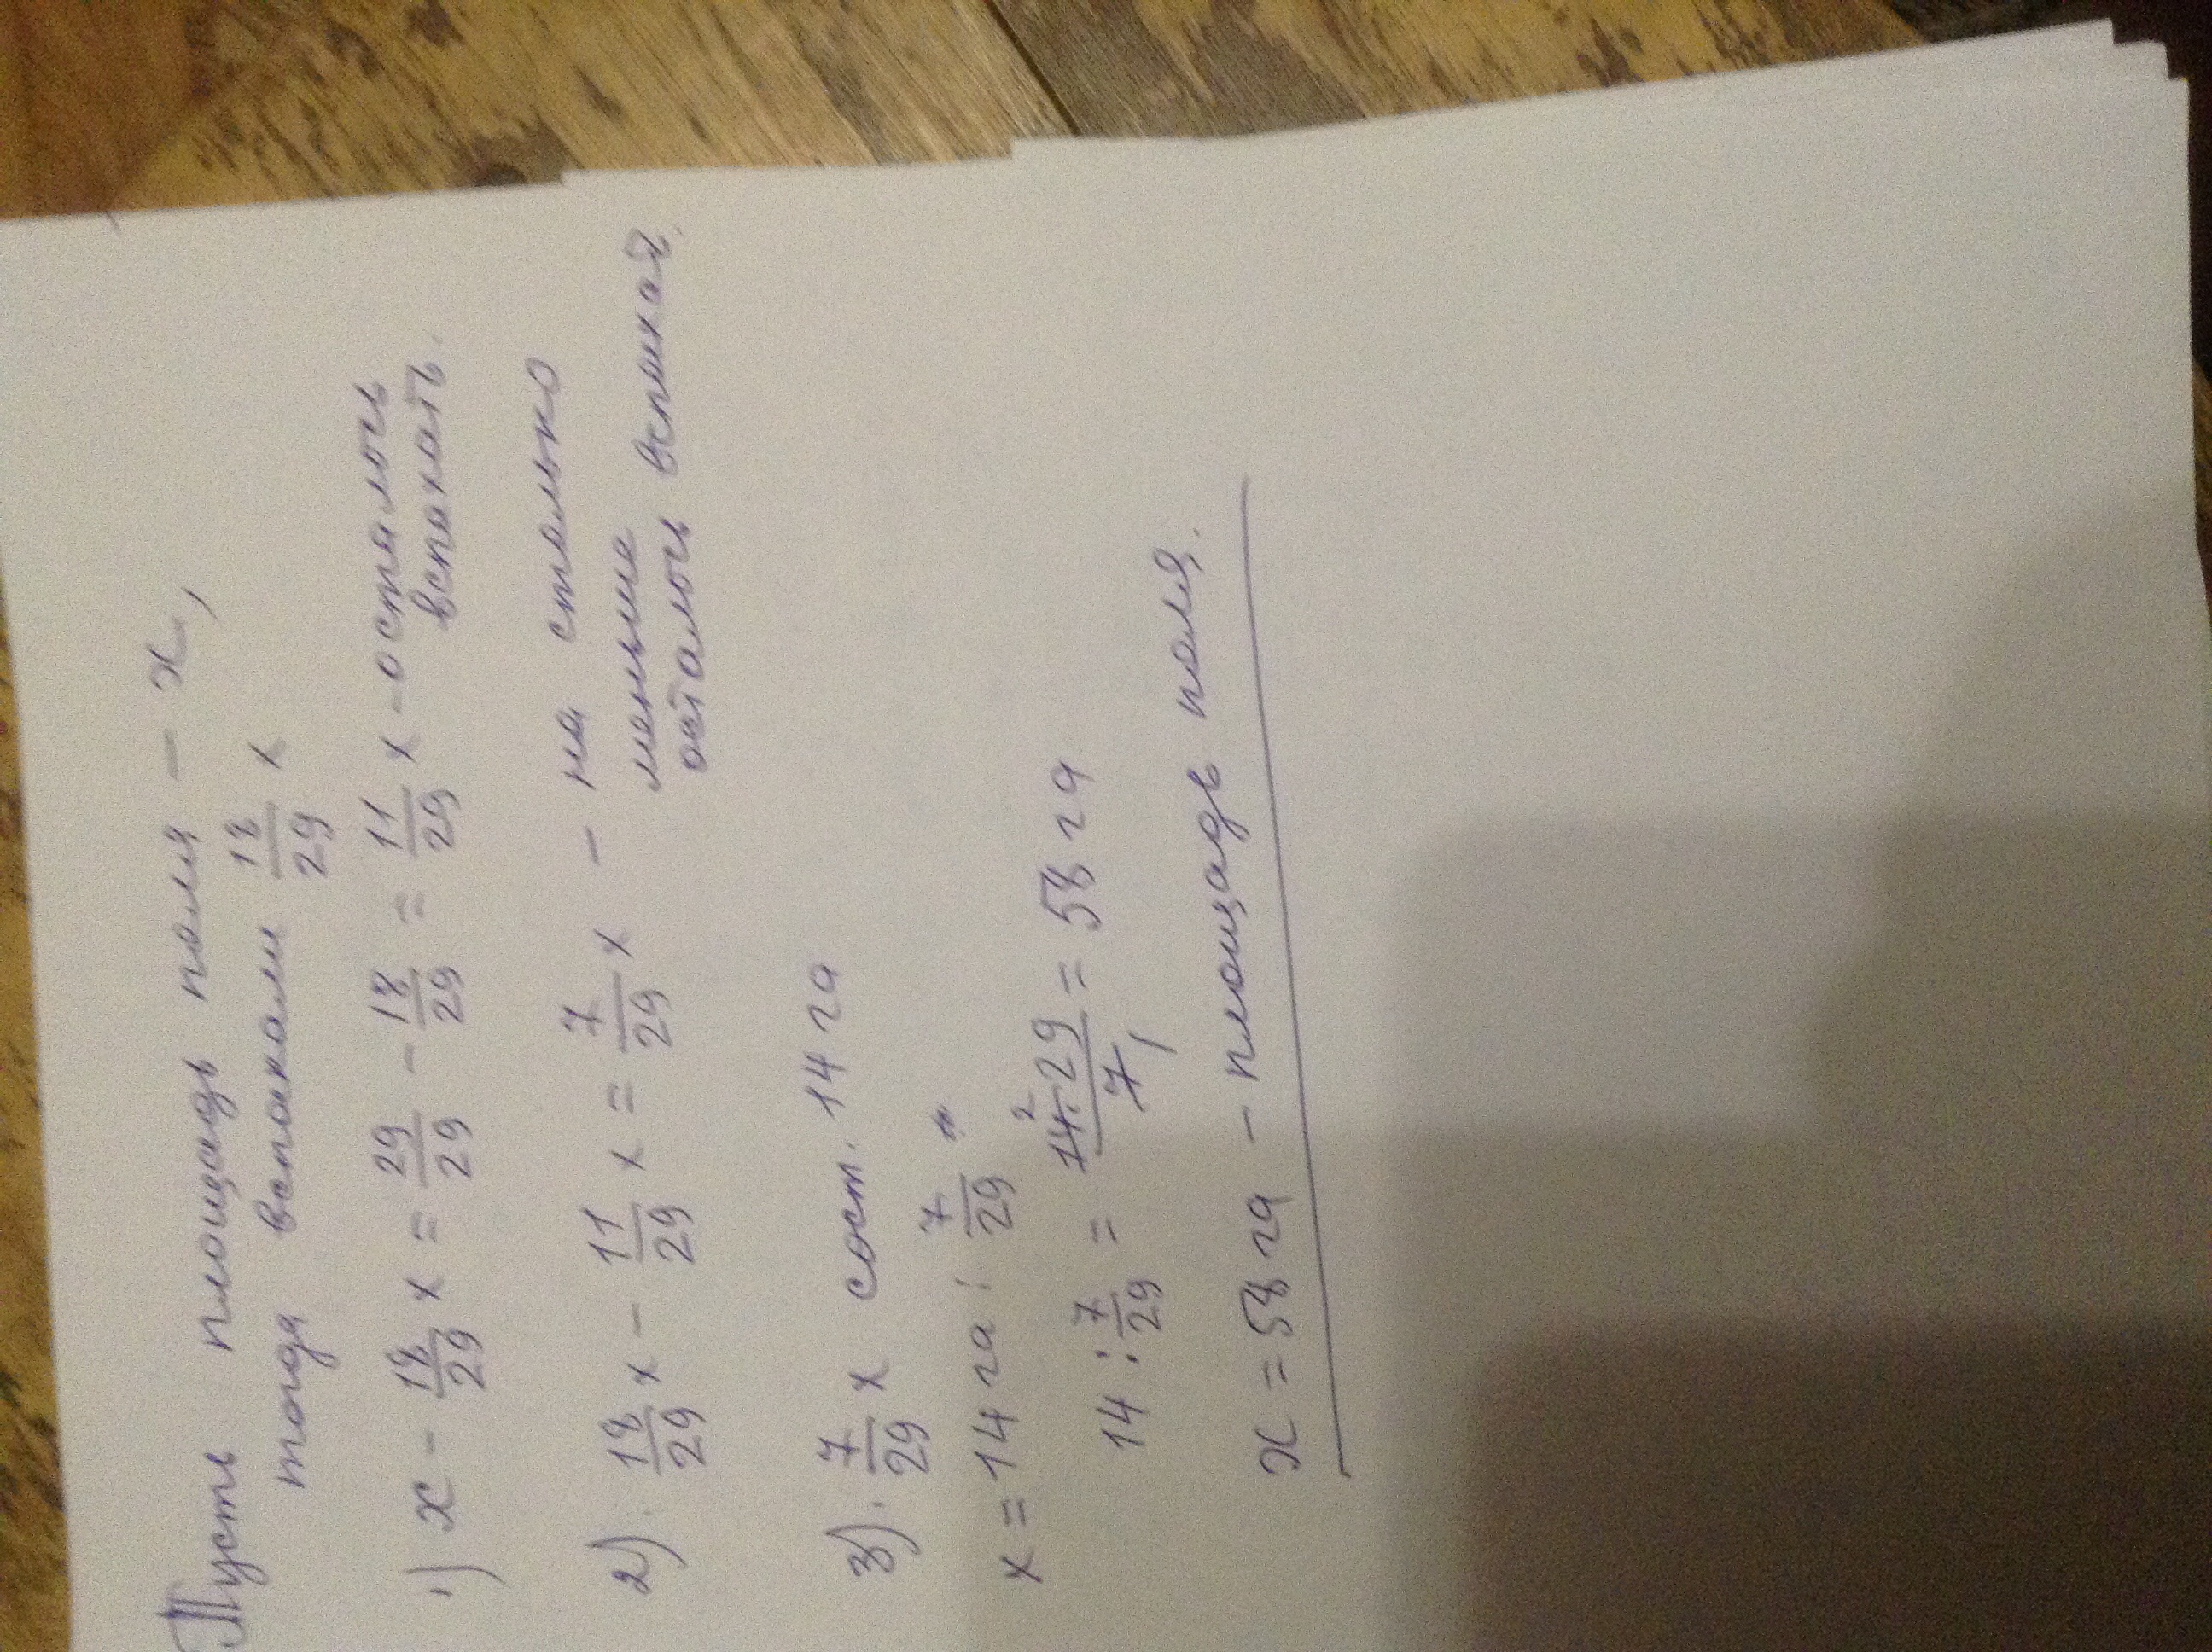 Пусть площадь поля – х,
тогда вспахали 18/29 х
1) х - 18/29 х = 29/29 - 18/29 = 11/29 х - осталось
вспахать.
2). 18/29 х - 11/29 х = 7/29 х - на столько
меньше
осталось вспахат.
3). 7/29 х сост. 14 га
х = 14 га : 7/29 "
14 : 7/29 = 14·29/7 = 58 га
х = 58 га - площадь поля.